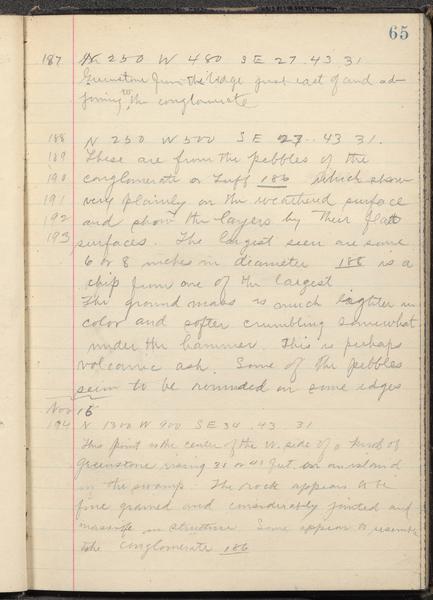 65
187 N 250 W 480 SE 27. 43. 31
Greenstone from the ledge just east of and ad-
joining to the conglomerate
188 N 250 W 500 SE 27. 43 31.
189 These are from the pebbles of the
190 conglomerate or tuff 186 which show
191 very plainly on the weathered surface
192 and show the layers by their flat
193 surfaces. The largest seen are some
6 or 8 inches in diameter 188 is a
chip from one of the largest
The ground mass is much lighter in
color and softer crumbling somewhat
under the hammer. This is perhaps
volcanic ash. Some of the pebbles
seem to be rounded on some edges
Nov 15
194 N 1300 W 900 SE 34. 43. 31
This point is the center of the W. side of a knob of
greenstone rising 31 or 41 feet on an island
in the swamp. The rock appears to be
fine grained and considerably jointed and
massive in structure. Some appear to resemble
the conglomerate 186